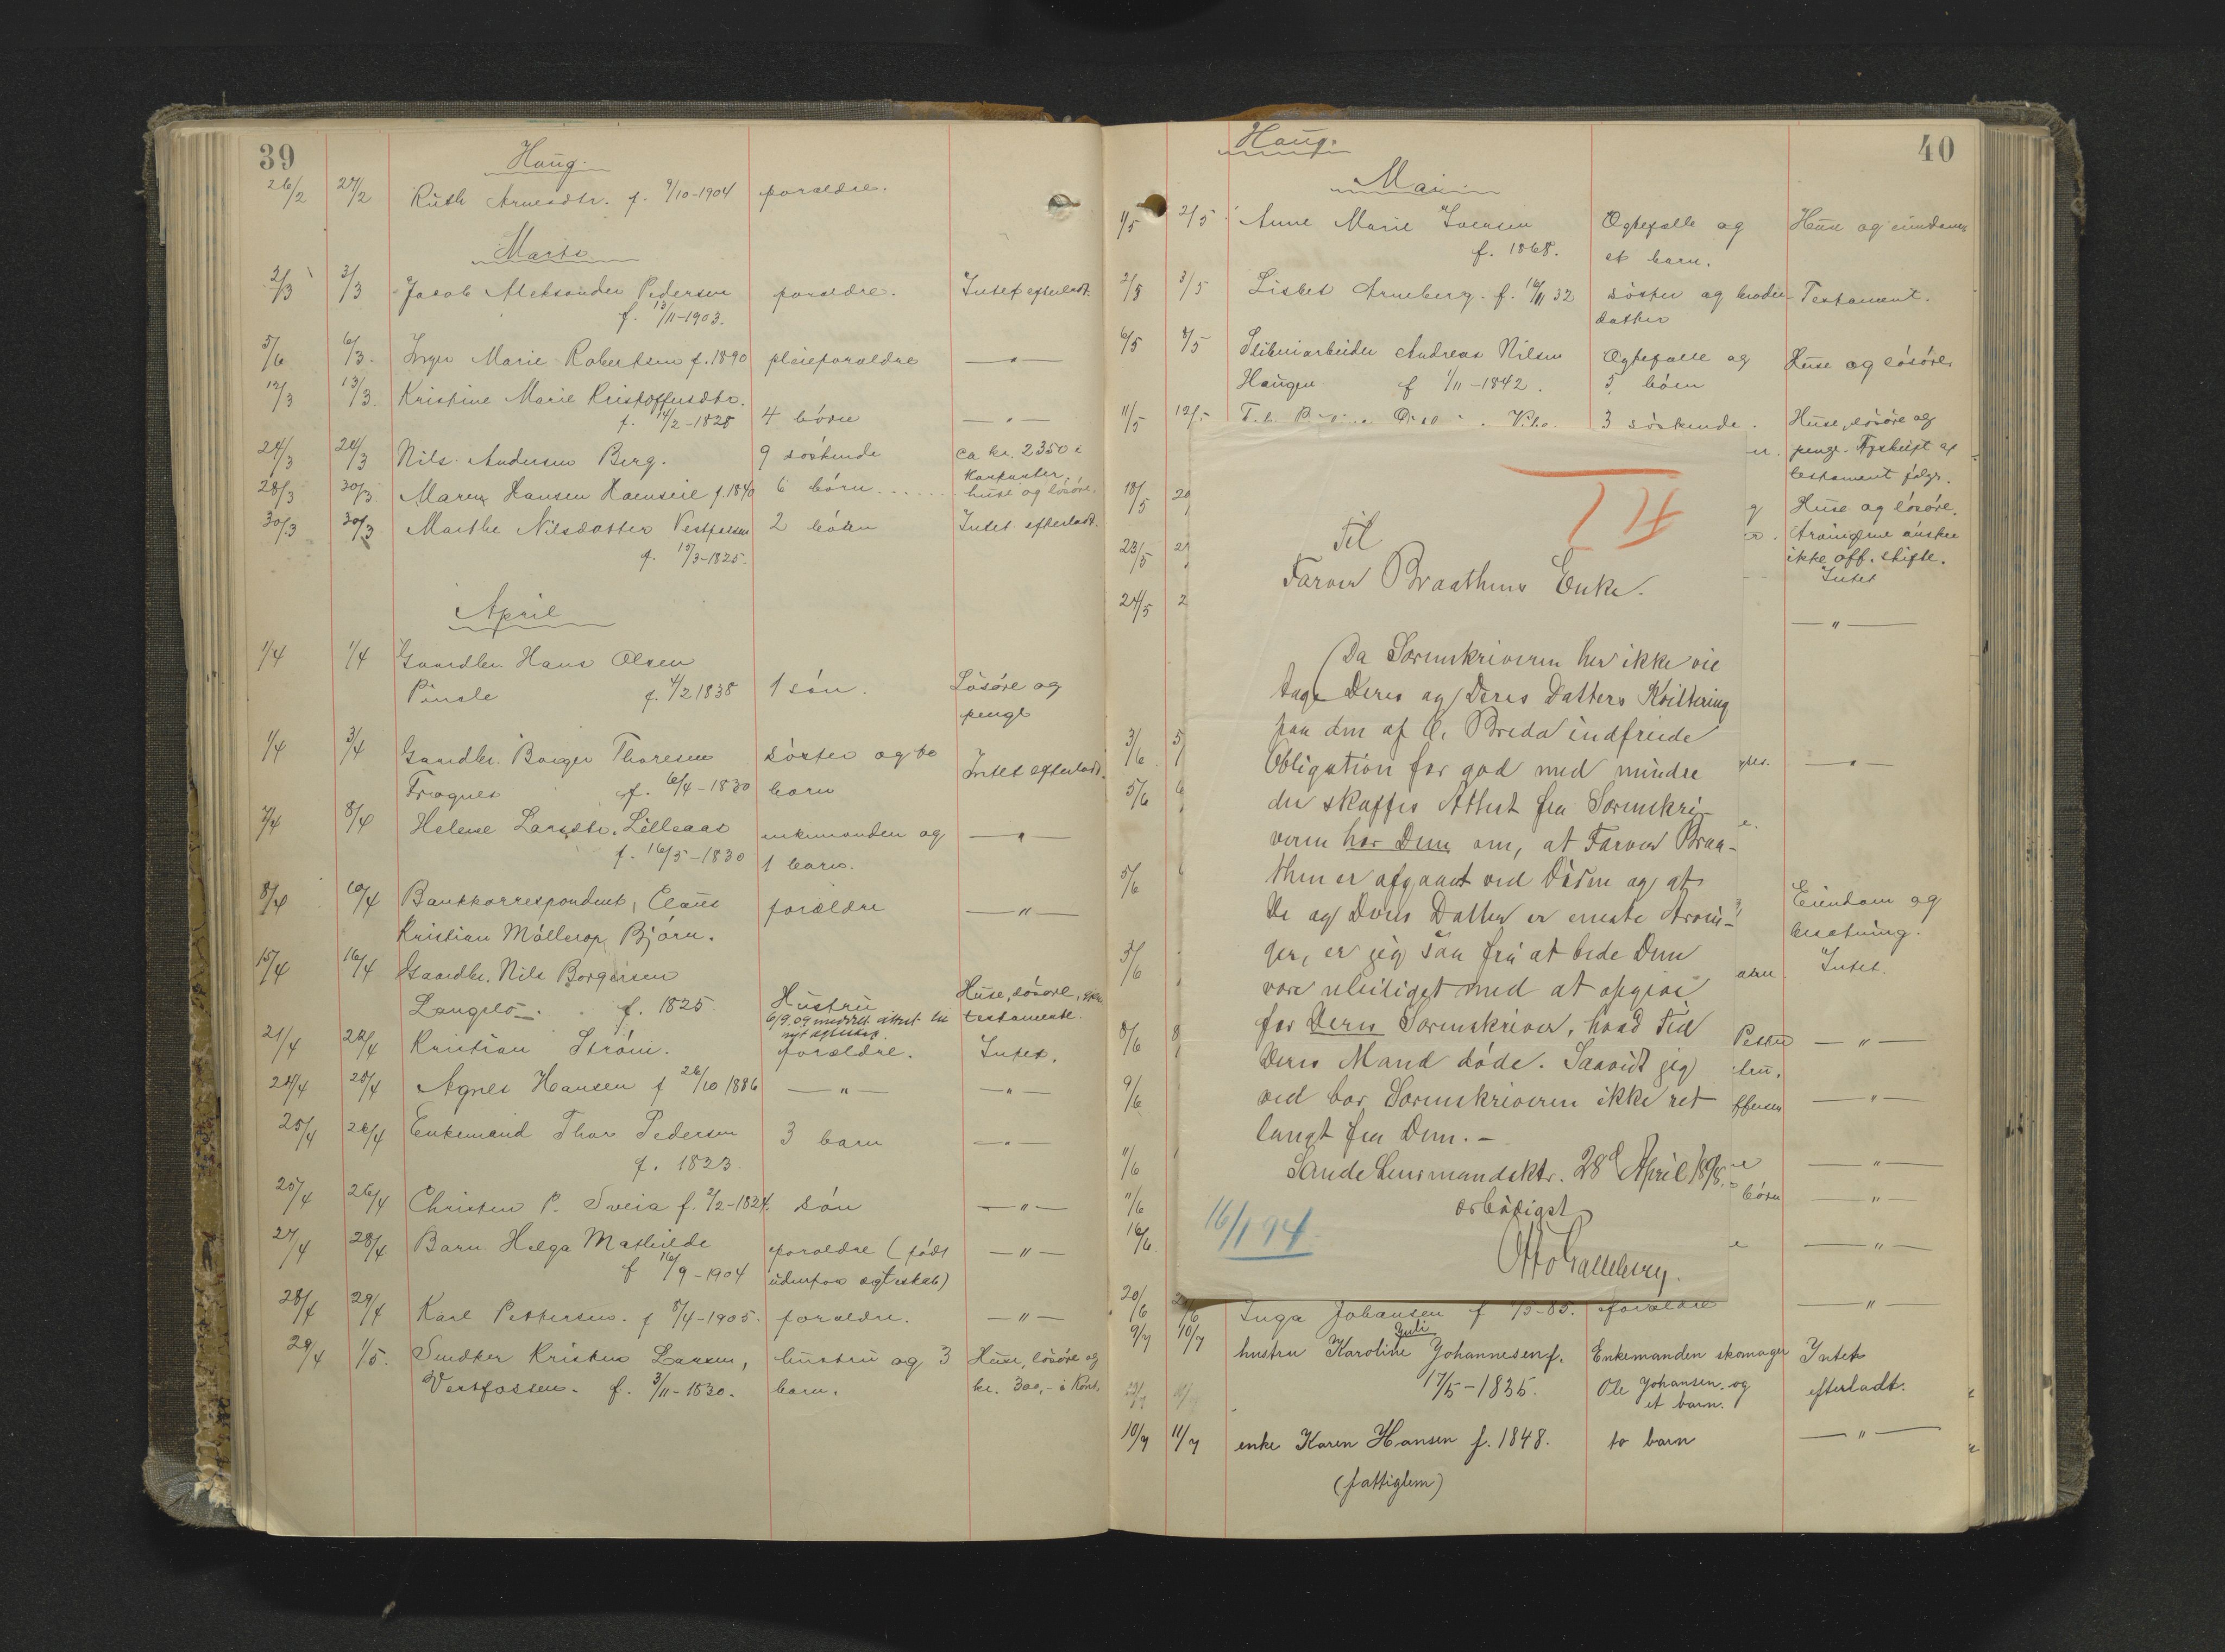 39
Haug.
26/2 27/2 Ruth Arnesdtr. f. 9/10-1904 forældre.
Marts
2/3 3/3 Jacob Aleksander Pedersen forældre. Intet efterladt.
f. 13/11-1903.
5/6 6/3. Inger Marie Robertsen f. 1890 pleieforældre — " —
12/3 13/3. Kristine Marie Kristoffersdtr.
f. 14/2-1828 4 börn — " —
24/3 24/3 Nils Andersen Berg. 9 söskende ca kr. 2350 i
Kontanter,
28/3 30/3 Maren Hansen f. 1840 6 börn...... huse og lösöre.
30/3 30/3 Marthe Nilsdatter Vestfossen 2 börn Intet efterladt.
f. 15/3-1825.
April
1/4 1/4 Gaardbr. Hans Olsen
f. 4/2 1838 1 sön. Lösöre og
penge
1/4 3/4 Gaardbr. Borger Thoresen söster og to Intet efterladt.
Fragnes f. 6/4-1830 barn
7/4 8/4 Helene Larsdtr. Lilleaas enkemanden og — " —
f. 16/5-1830 1 barn.
8/4 10/4 Bankkorrespondent, Claus forældre — " —
Kristian Möllerop Björn.
15/4 16/4 Gaardbr. Nils Borgersen
Langelö. f. 1825 Hustru Huse, lösöre,
6/9.09 meddelt attest testamente.
21/4 22/4 Kristian Ström. forældre. Intet.
24/4 25/4 Agnes Hansen f 26/10 1886 — " — — " —
25/4 26/4 Enkemand Thor Pedersen 3 barn — " —
f. 1823.
25/4 26/4 Christen P. Sveia f. 2/2-1824. sön — " —
27/4 28/4 Barn Helga Mathilde forældre (födt — " —
f 16/9-1904 udenfor ægteskab)
28/4 29/4 Karl Pettersen. f 8/4-1905. forældre. — " —
29/4 1/5. Snedker Kristen Larsen, hustru og 3 Huse, lösöre og
Vestfossen. f. 3/11-1830. barn. kr. 300,- i Kont.
Haug.
40
Mai
1/5 2/5 Anne Marie Iversen Ægtefælle og Huse og eiendom
f. 1868. et barn.
2/5 3/5 Lisbet Arneberg. f. 16/11 32 söster og broder- Testament.
datter
6/5 8/5 Sliberiarbeider Andreas Nilsen Ægtefælle og Huse og lösöre
Haugen f 1/11-1842. 5 börn
11/5 12/5 3 söskende. Huse, lösöre og
penge. Afskrift af
testament fölger.
18/5 20 Huse og lösöre.
23/5 Arvingerne önsker
ikke off. skifte.
Intet
24/5 2 — " —
Til
Farver Braathens Enke.
Da Sorenskriveren her ikke vil
tage Deres og Deres Datters Kvittering
paa den af O. Breda indfriede
Obligation for god med mindre
der skaffes Attest fra Sorenskri-
veren hos Dem om, at Farver Braa-
then er afgaaet ved Döden og at
De og Deres Datter er eneste Arvin-
ger, er jeg saa fri at bede Dem
være uleiliget med at opgive
for Deres Sorenskriver, hvad Tid
Deres Mand döde. Saavidt jeg
ved bor Sorenskriveren ikke ret
langt fra Dem. -
Sande Lensmandsktr. 28d April 1898.
ærbödigst
Otto Galleberg.
16/1 94
3/6 5 — " —
5/6 6
5/6 Eiendom og
besætning.
3/6 Intet.
8/6 8 — " —
9/6 — " —
11/6 — " —
11/6 börn — " —
16/6. — " —
20/6 Inga Johansen f 1/5-85. forældre — " —
Juli
9/7 10/7 hustru Karoline Johannesen f. Enkemanden skomager Intet
17/5-1835. Ole Johansen og efterladt.
et barn.
10/7 11/7 enke Karen Hansen f. 1848. to barn — " —
(fattiglem)